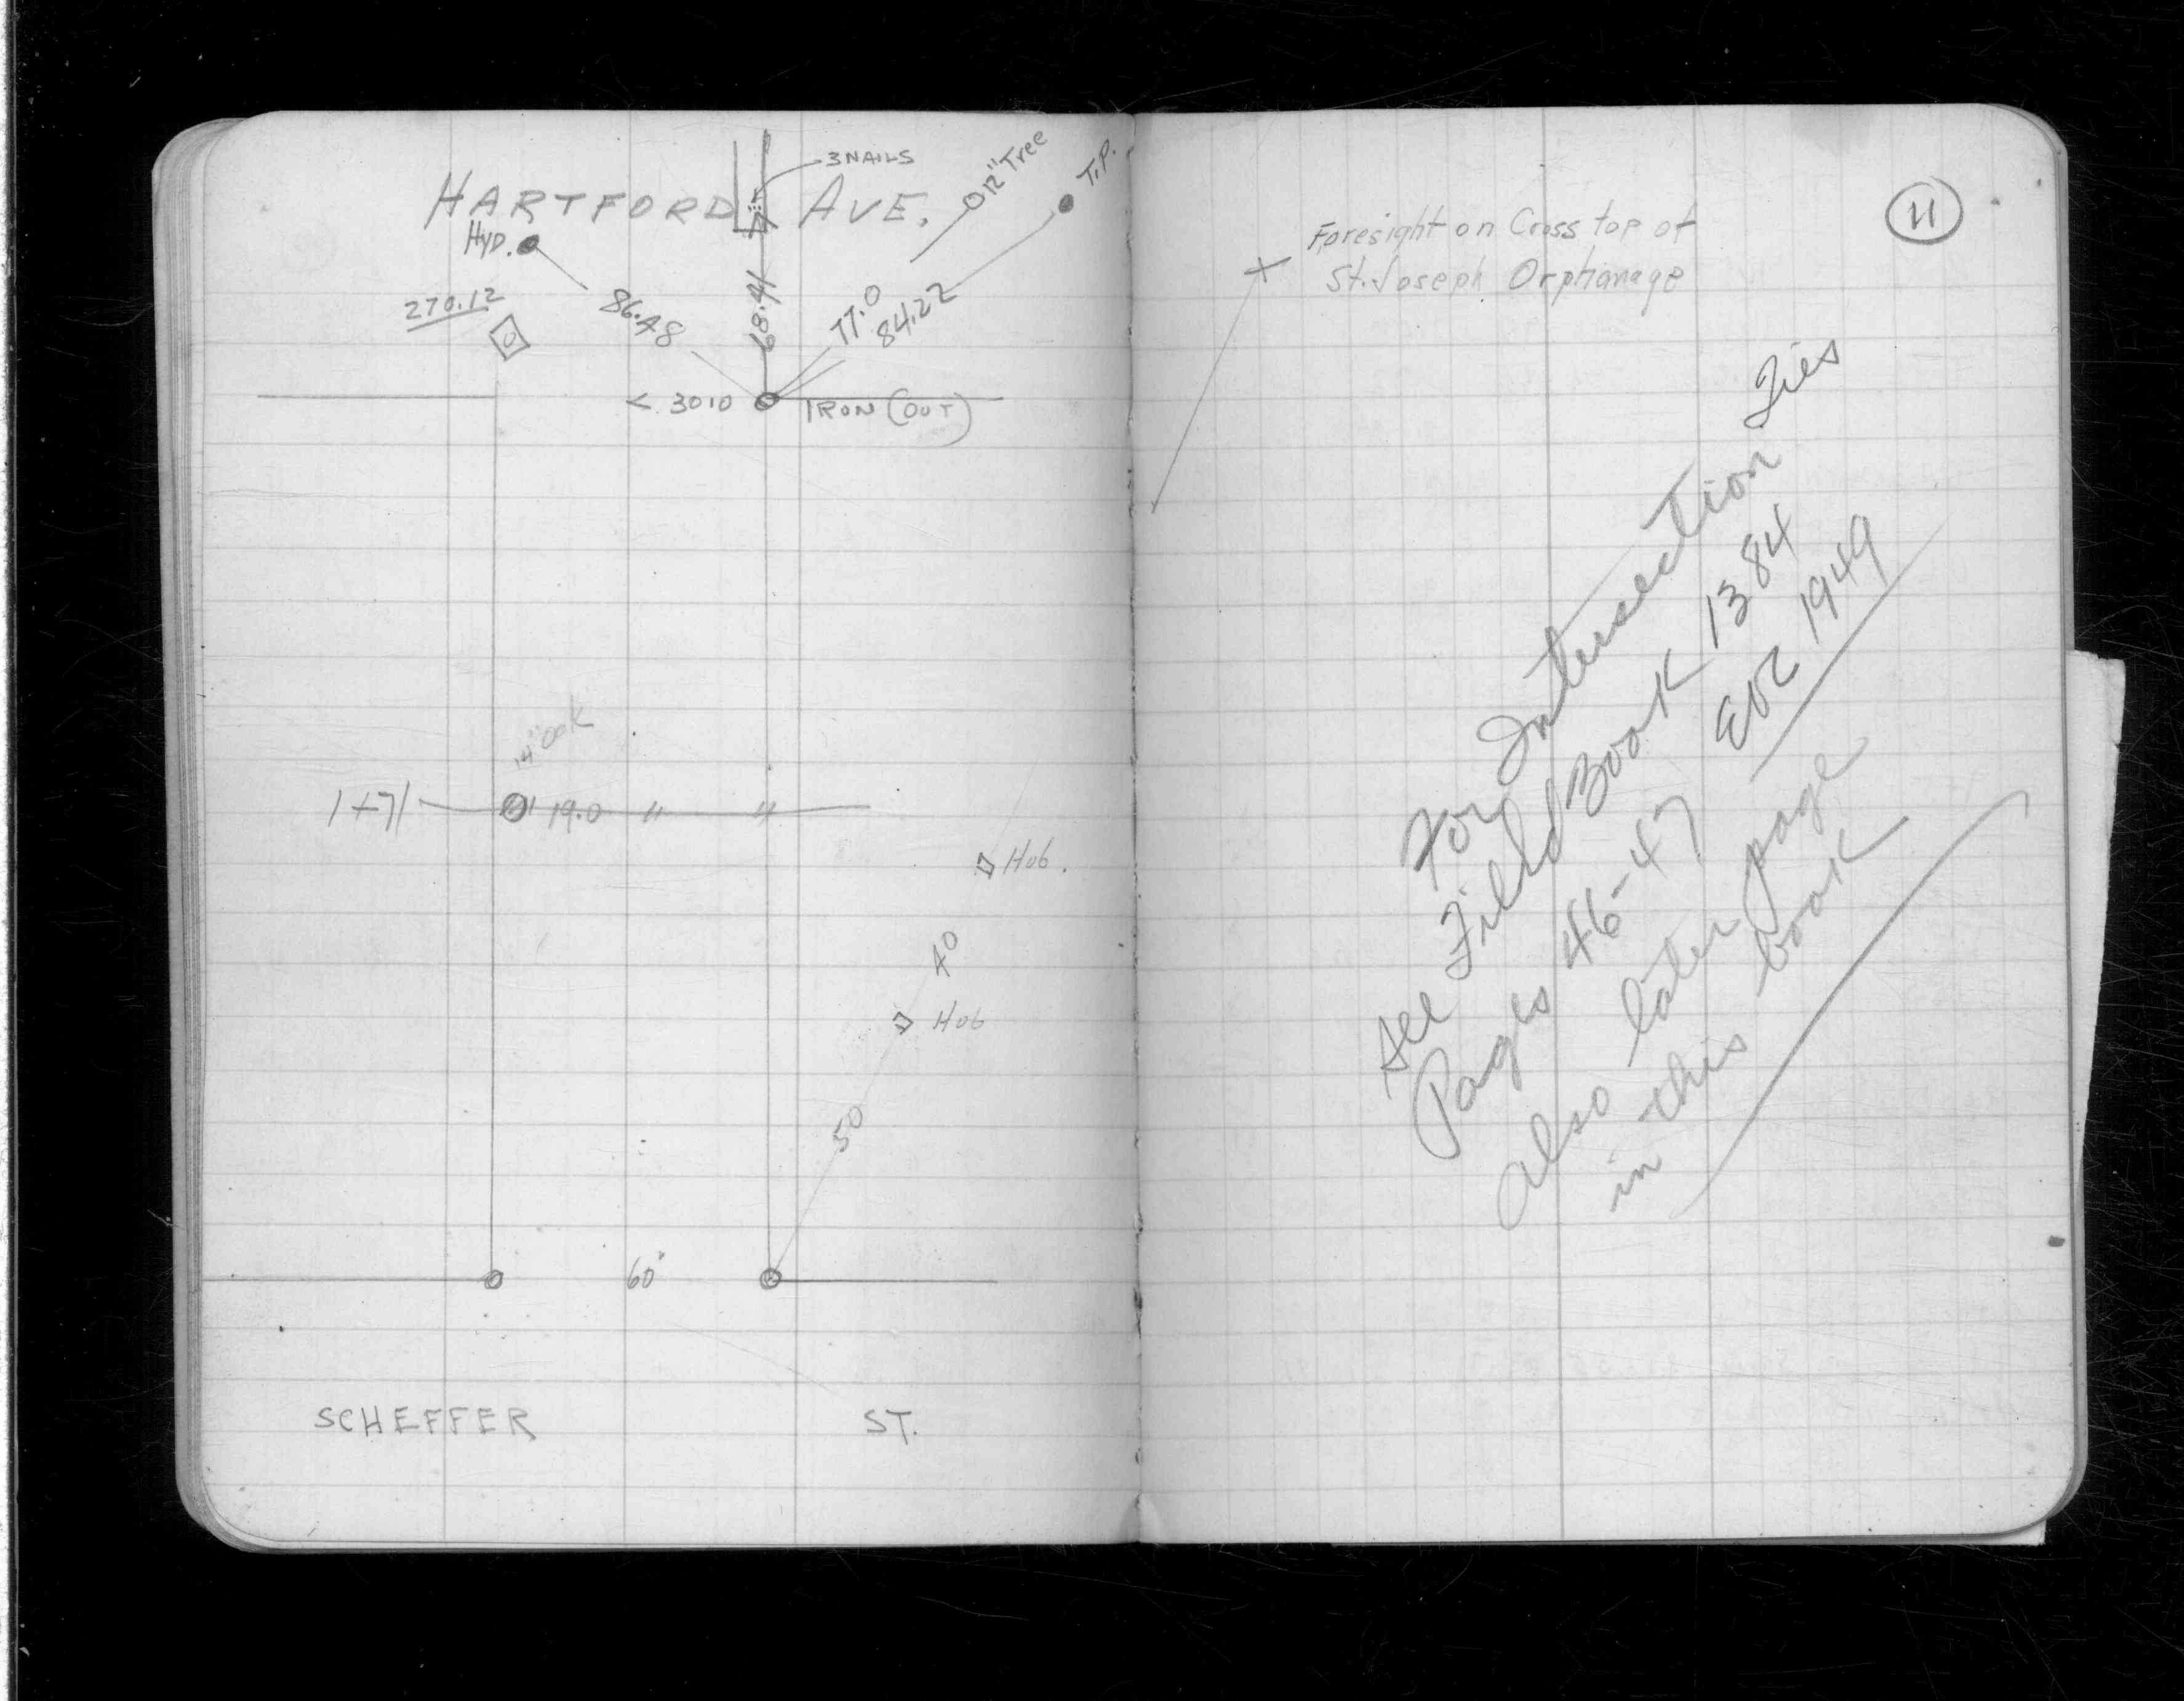 3 NAILS
HARTFORD AVE.
12" Tree
T.P.
HYD.
270.12
86.48
68.41
77.0
84.22
< 3010
IRON (OUT)
14" Oak
1+71
19.0 " "
Hub.
40
Hub
50
60'
SCHEFFER ST.
11
Foresight on Cross top of
St. Joseph Orphanage
For Intersection Ties
see Field Book 1384
Pages 46-47
1949
also later page
in this book